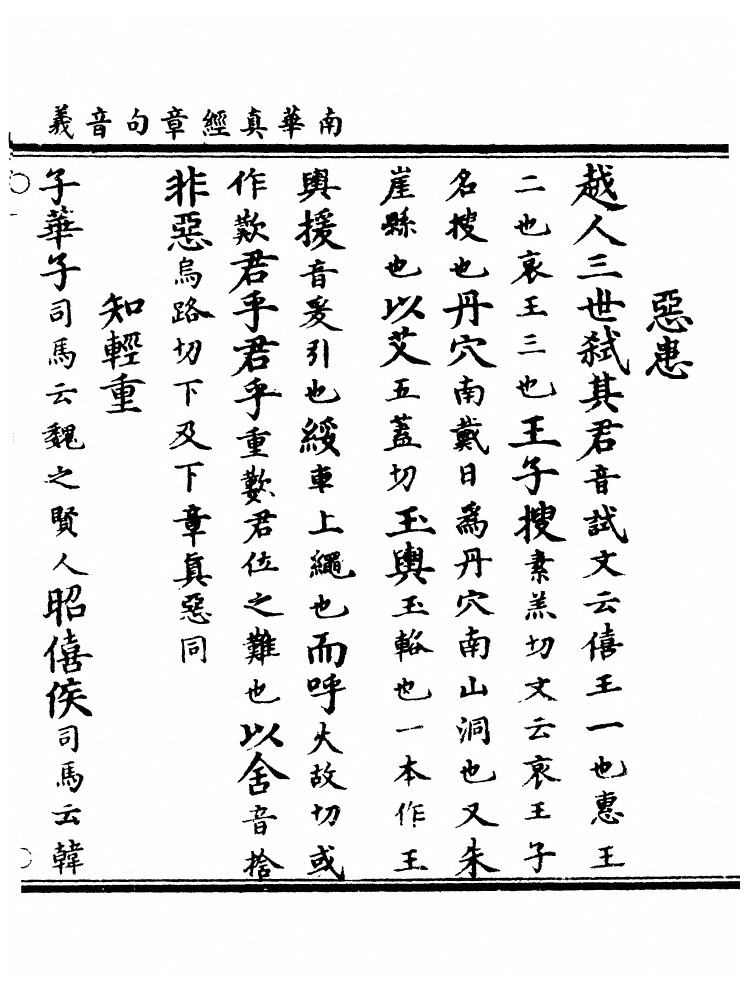 南華真經章句音義
惡患
越人三世弑其君音試文云僖王一也惠王
二也哀王三也王子搜素羔切文云哀王子
名搜也丹穴南戴日為丹穴南山洞也又朱
崖縣也以艾五蓋切玉輿玉輅也一本作王
輿援音爰引也綏車上繩也而呼火故切或
作歎君乎君乎重歎君位之難也以舍音捨
非惡烏路切下及下章真惡同
知輕重
子華子司馬云魏之賢人昭僖侯司馬云韓